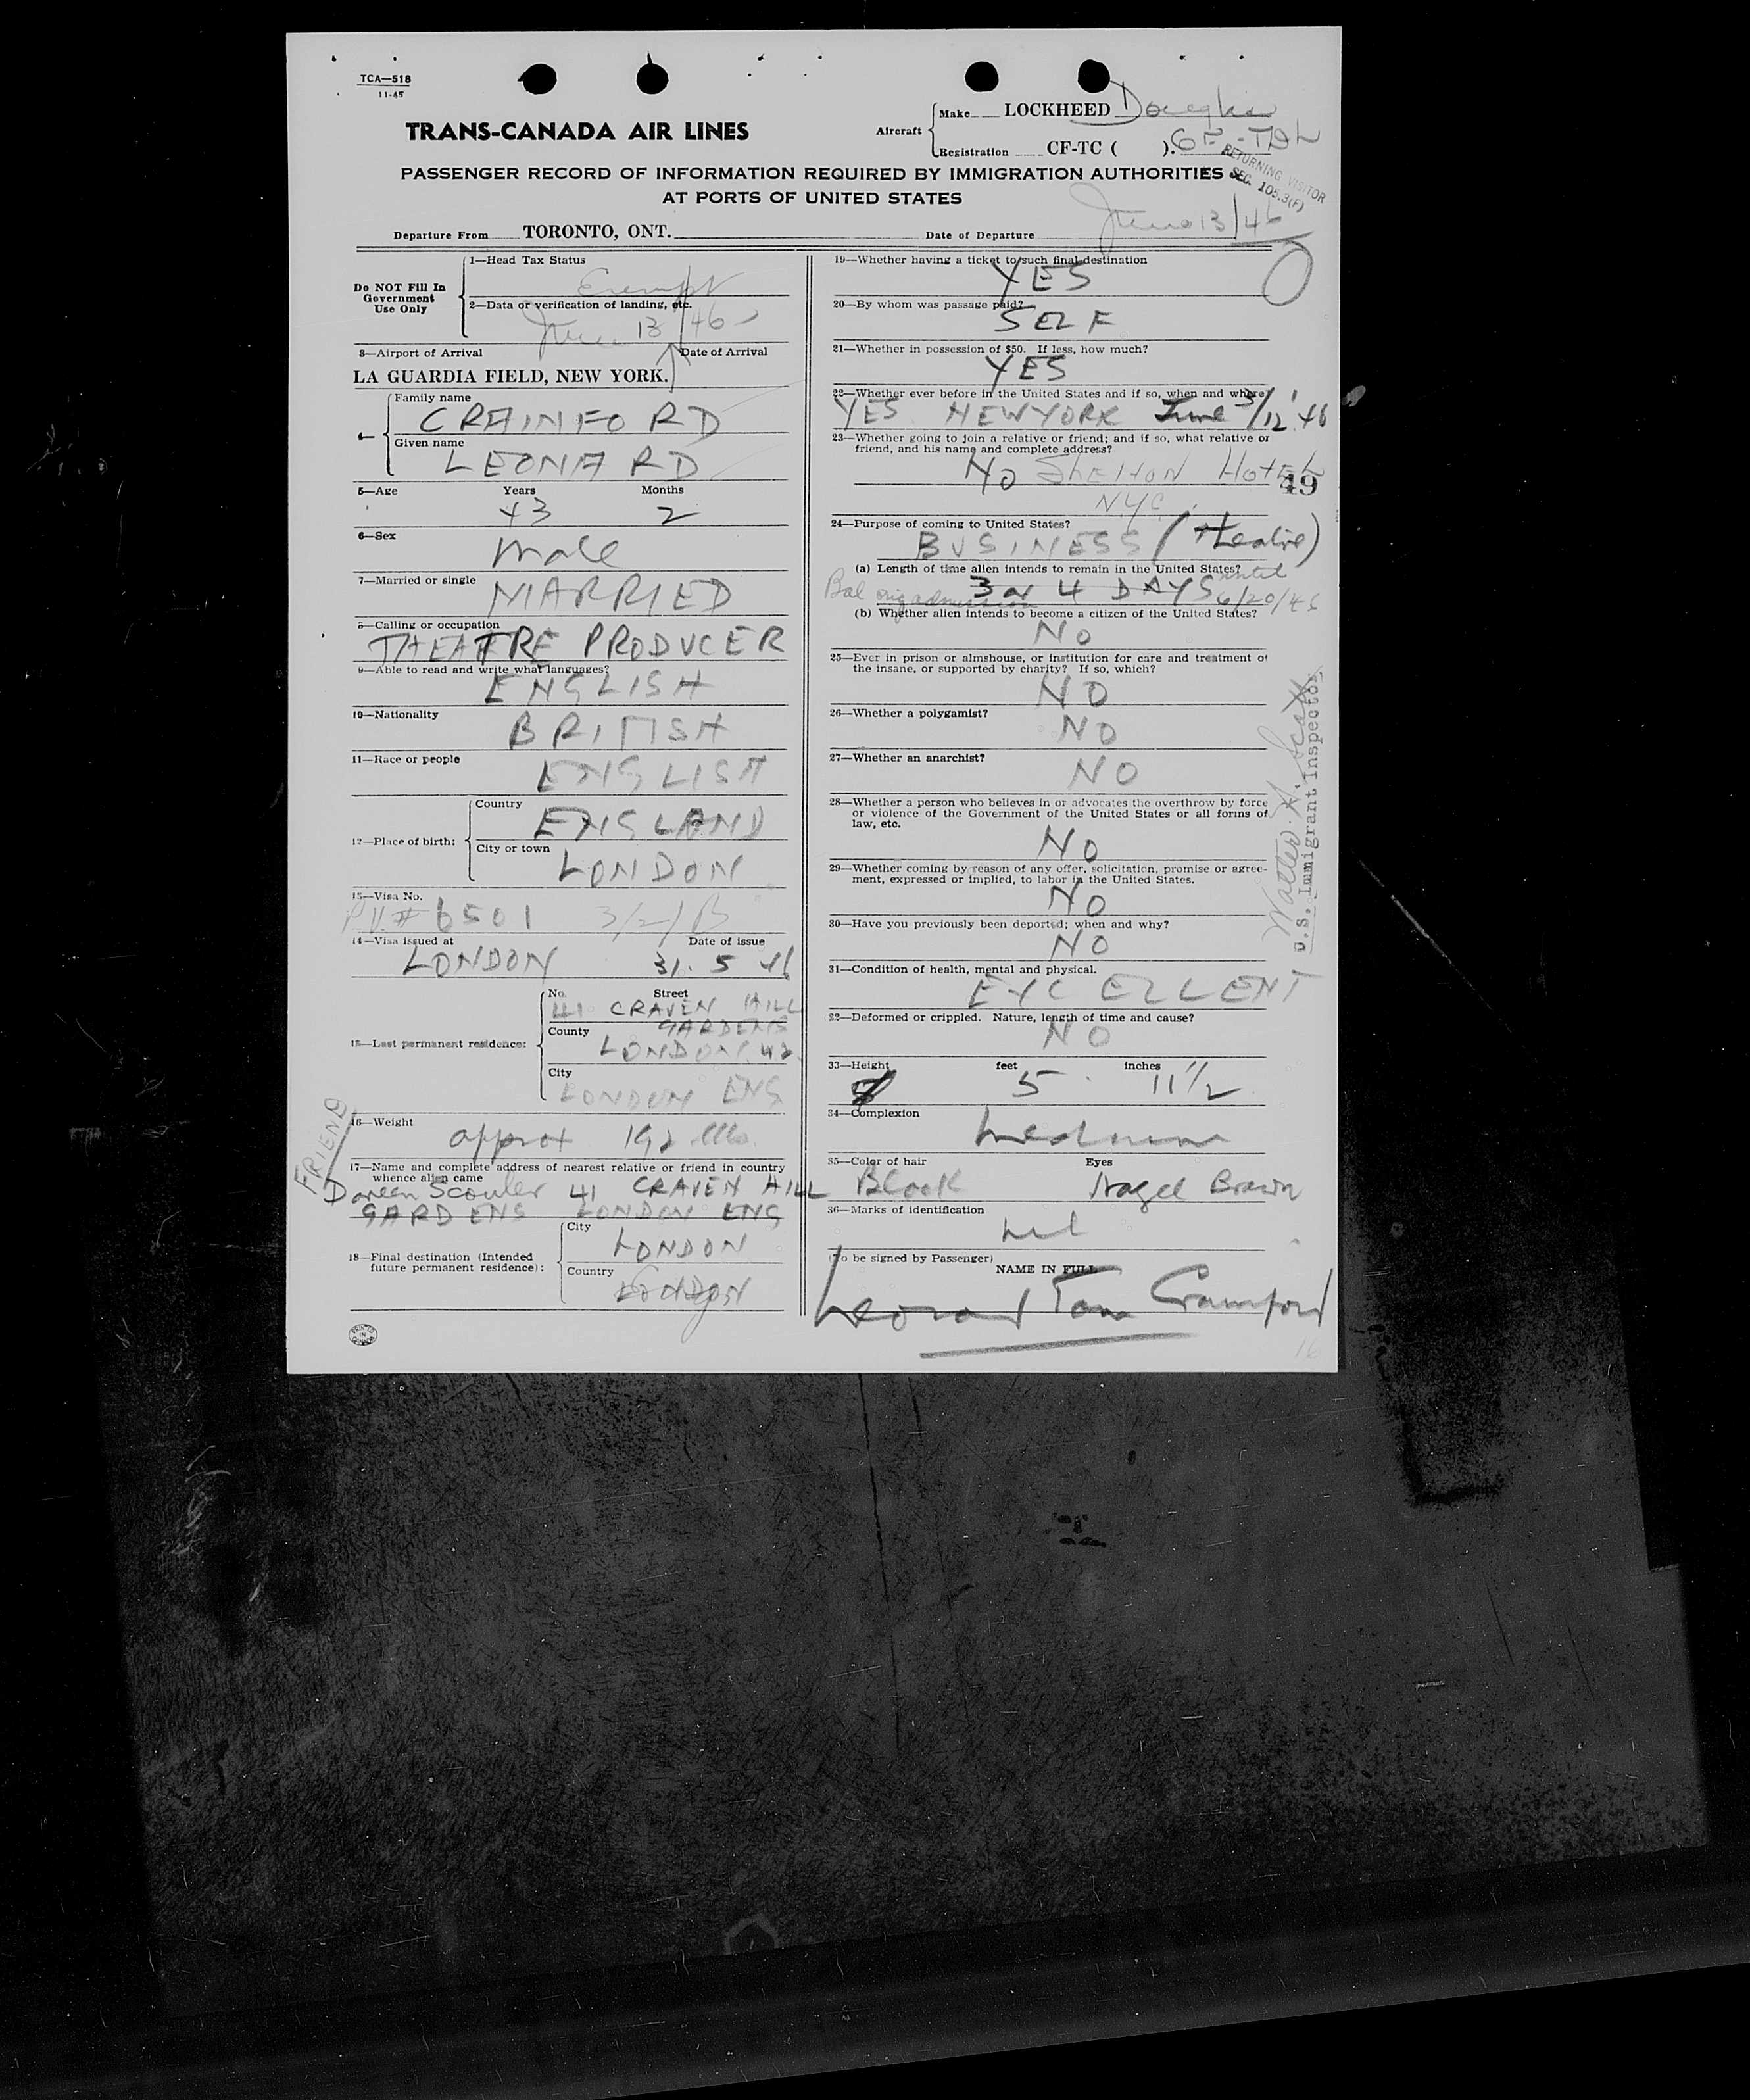 TCA—518
11-45
TRANS-CANADA AIR LINES
Aircraft
Make LOCKHEED Douglas
Registration CF-TC ( ).
RETURNING VISITOR
SEC. 105.3(F)
PASSENGER RECORD OF INFORMATION REQUIRED BY IMMIGRATION AUTHORITIES
AT PORTS OF UNITED STATES
Departure From TORONTO, ONT.
Date of Departure June 13/46
Do NOT Fill In
Government
Use Only
1—Head Tax Status
Exempt
2—Data or verification of landing, etc.
June 13/46
3—Airport of Arrival Date of Arrival
LA GUARDIA FIELD, NEW YORK.
4— Family name
CRAINFORD
Given name
LEONARD
5—Age Years Months
43 2
6—Sex
Male
7—Married or single
MARRIED
8—Calling or occupation
THEATRE PRODUCER
9—Able to read and write what languages?
ENGLISH
10—Nationality
BRITISH
11—Race or people
ENGLISH
12—Place of birth:
Country
ENGLAND
City or town
LONDON
13—Visa No.
P.V.# 6501 3/2/B
14—Visa issued at Date of issue
LONDON 31. 5 46
15—Last permanent residence:
No. Street
41 CRAVEN HILL
GARDENS
County
LONDON W2
City
LONDON ENG
16—Weight
approx 192 lbs.
17—Name and complete address of nearest relative or friend in country
whence alien came
FRIEND
Doreen Scouler 41 CRAVEN HILL
GARDENS LONDON ENG
18—Final destination (Intended
future permanent residence):
City
LONDON
Country
LONDON
PRINTED
IN
CANADA
19—Whether having a ticket to such final destination
YES
20—By whom was passage paid?
SELF
21—Whether in possession of $50. If less, how much?
YES
22—Whether ever before in the United States and if so, when and where?
YES NEWYORK June 3/12 '46
23—Whether going to join a relative or friend; and if so, what relative or
friend, and his name and complete address?
No SHELTON HOTEL
N.Y.C.
49
24—Purpose of coming to United States?
BUSINESS (theatre)
(a) Length of time alien intends to remain in the United States?
Bal orig admission 3 or 4 DAYS until 6/20/46
(b) Whether alien intends to become a citizen of the United States?
No
25—Ever in prison or almshouse, or institution for care and treatment of
the insane, or supported by charity? If so, which?
NO
26—Whether a polygamist?
NO
27—Whether an anarchist?
NO
28—Whether a person who believes in or advocates the overthrow by force
or violence of the Government of the United States or all forms of
law, etc.
No
29—Whether coming by reason of any offer, solicitation, promise or agree-
ment, expressed or implied, to labor in the United States.
No
30—Have you previously been deported; when and why?
NO
31—Condition of health, mental and physical.
EXCELLENT
32—Deformed or crippled. Nature, length of time and cause?
NO
33—Height feet inches
5 11 1/2
34—Complexion
Medium
35—Color of hair Eyes
Black Hazel Brown
36—Marks of identification
Nil
(To be signed by Passenger)
NAME IN FULL
Leonard Tom Crainford
Walter A.
U.S. Immigrant Inspector
16